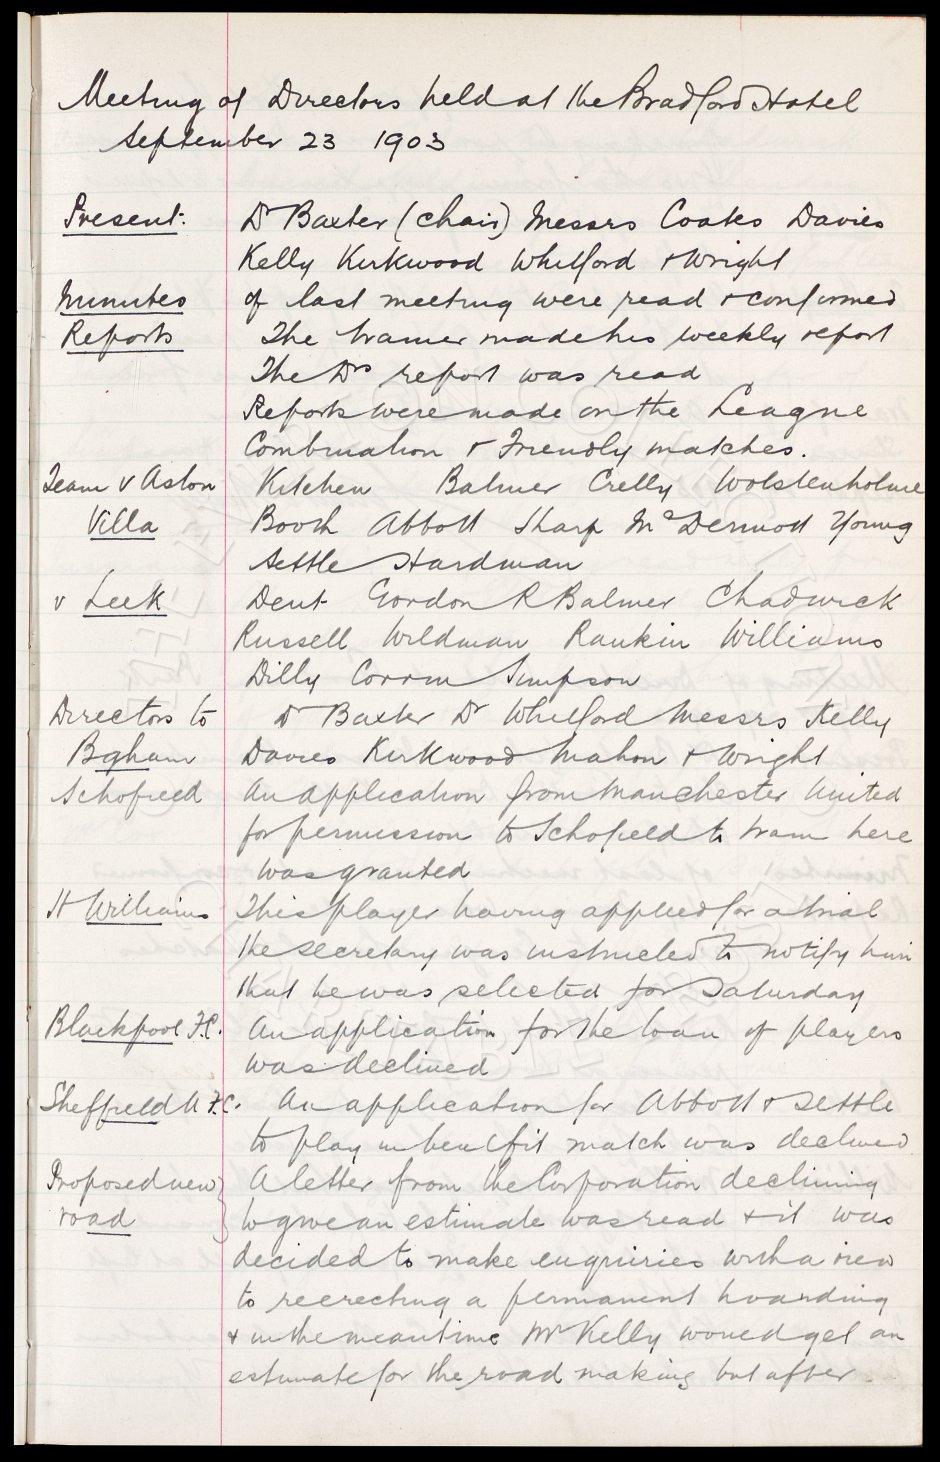 Meeting of Directors held at the Bradford Hotel
September 23 1903
Present: Dr Baxter (chair) Messrs Coates Davies
Kelly Kirkwood Whitford & Wright
Minutes of last meeting were read & confirmed
Reports The trainer made his weekly report
The Drs report was read
Reports were made on the League
Combination & Friendly matches.
Team v Aston Kitchen Balmer Crelly Wolstenholme
Villa Booth Abbott Sharp McDermott Young
Settle Hardman
v Leek Dent Gordon R Balmer Chadwick
Russell Wildman Rankin Williams
Dilly Corrin Simpson
Directors to Dr Baxter Dr Whitford Messrs Kelly
Bgham Davies Kirkwood Mahon & Wright
Schofield An application from Manchester United
for permission to Schofield to train here
was granted
H Williams This player having applied for a trial
the secretary was instructed to notify him
that he was selected for Saturday
Blackpool F.C. An application for the loan of players
was declined
Sheffield U F.C. An application for Abbott & Settle
to play in benefit match was declined
Proposed new A letter from the Corporation declining
road to give an estimate was read & it was
decided to make enquiries with a view
to reerecting a permanent hoarding
& in the meantime Mr Kelly would get an
estimate for the road making but after